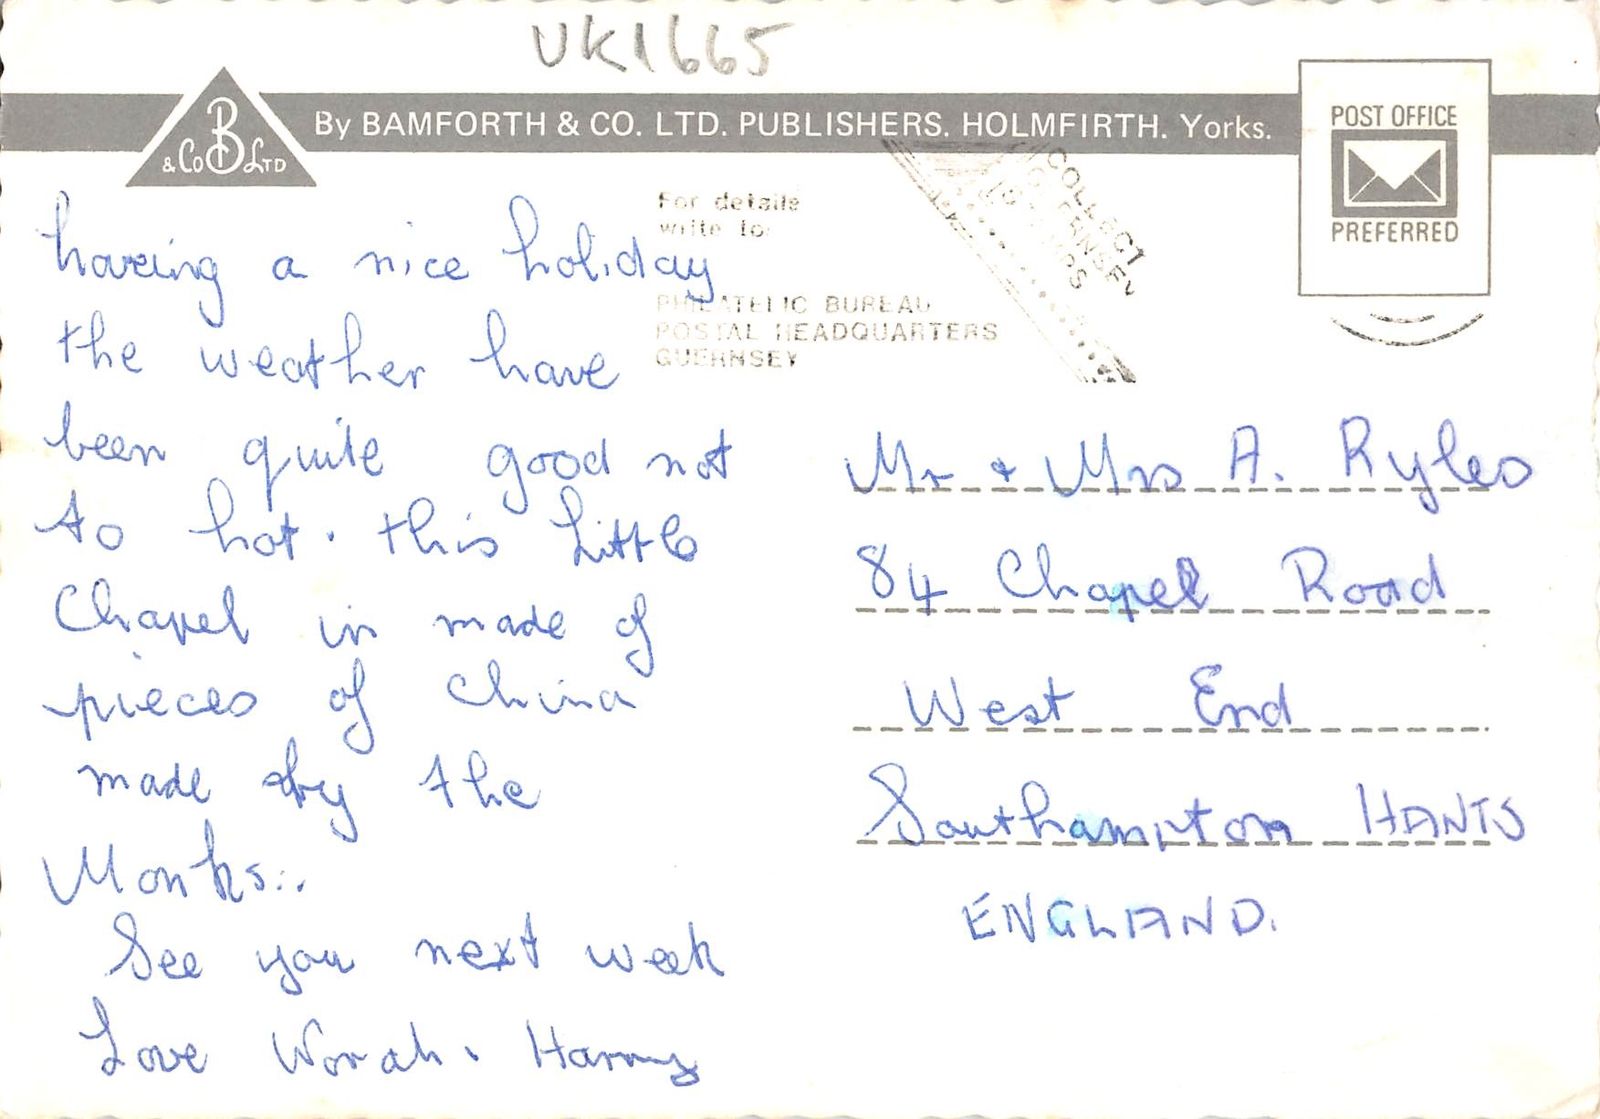 UK1665
B & Co LTD
By BAMFORTH & CO. LTD. PUBLISHERS. HOLMFIRTH. Yorks.
POST OFFICE
PREFERRED
For details
write to
PHILATELIC BUREAU
POSTAL HEADQUARTERS
GUERNSEY
COLLECT
GUERNSEY
STAMPS
having a nice holiday
the weather have
been quite good not
to hot. this Little
Chapel is made of
pieces of China
made by the
Monks..
See you next week
Love Norah. Harry
Mr + Mrs A. Ryles
84 Chapel Road
West End
Southampton HANTS
ENGLAND.